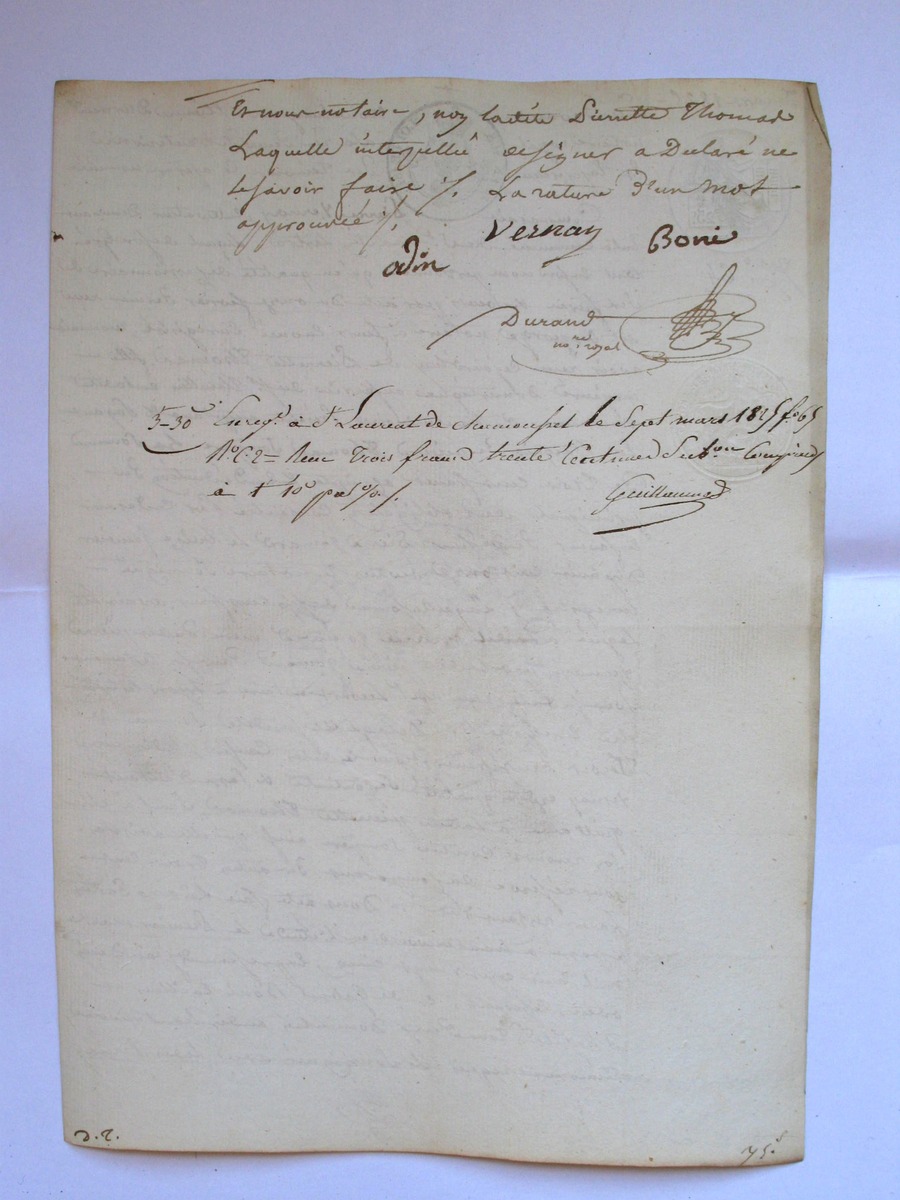 Et nous notaire, non ladite Pierrette Thomas
Laquelle interpellée de signer a Declaré ne
le savoir faire ./. La rature d'un mot
approuvée ./.
Vernay
Boni
odin
Durand
no.re royal
Enreg.é à S.t Laurent de Chamousset le Sept mars 1825 f.o 65
R.o C. 2 = Reçu Trois francs trente Centimes
à 1.f 10.c
Guillaumet
D.T.
75.c